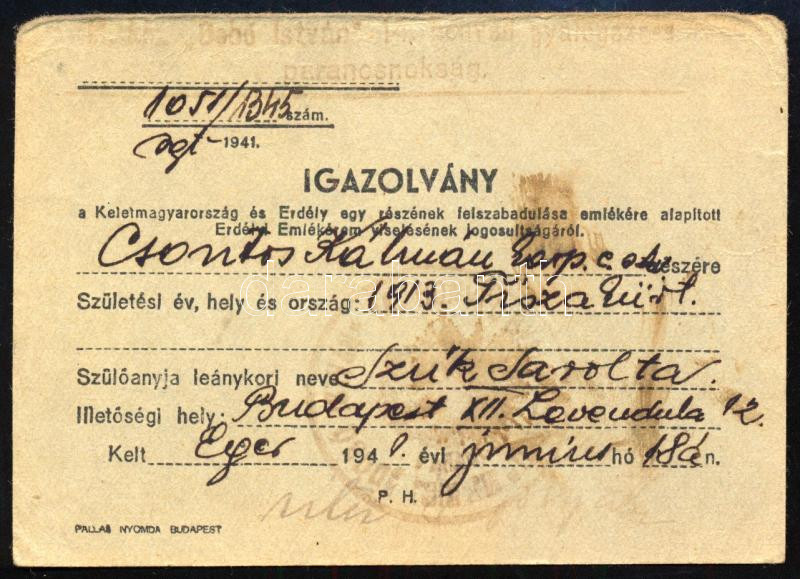 "Dobó István"
parancsnokság.
1051/1345 szám.
1941.
IGAZOLVÁNY
a Keletmagyarország és Erdély egy részének felszabadulása emlékére alapított
Erdélyi Emlékérem viselésének jogosultságáról.
Csontos Kálmán részére
Születési év, hely és ország: 1913. Tiszakürt.
Szülőanyja leánykori neve Szűk Sarolta.
Illetőségi hely: Budapest XII. Levendula 12.
Kelt Eger 1941. évi június hó 18án.
P. H.
PALLAS NYOMDA BUDAPEST
darabanth